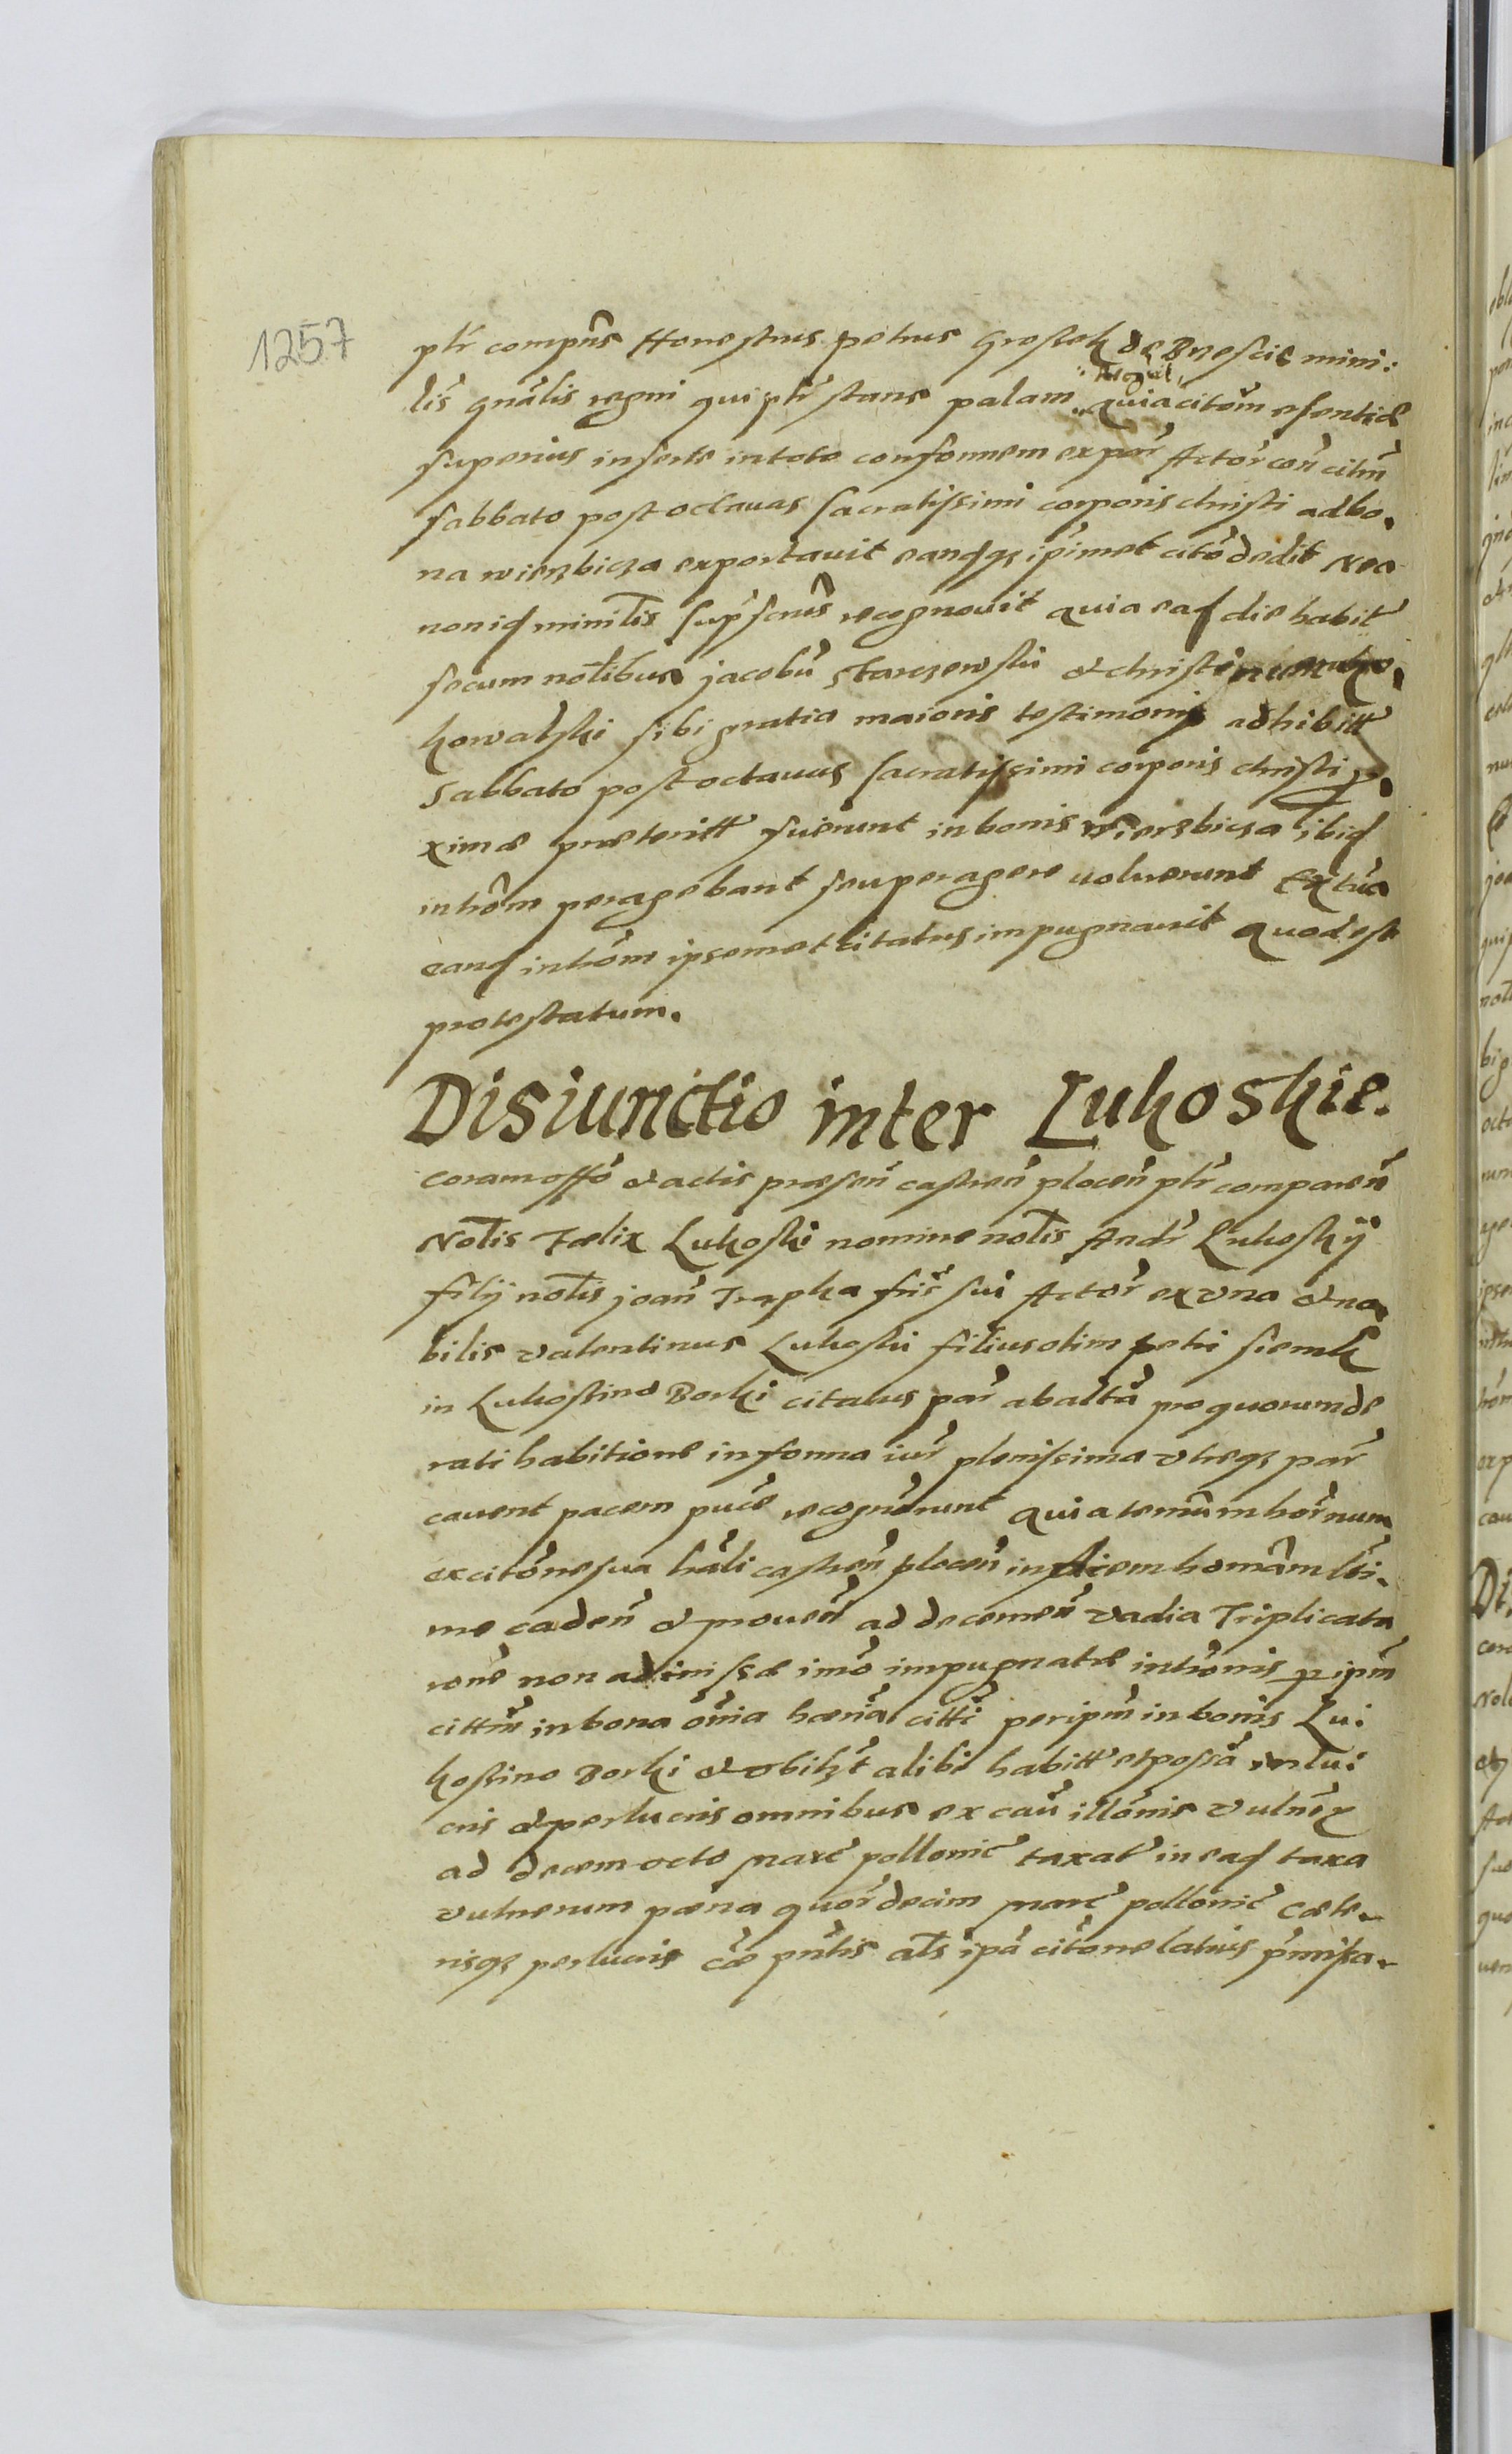 1257
pltr compns Honestus petrus Grosek de Brescie mini:
lis gnalis regni qui pltr stans palam recogt, quia citom esentie
superius inserte in toto conformem ex par Actor con citum
sabbato post octauas sacratissimi corporis christi ad bo,
na wierzbicza exportauit eandqz ipimet cito dedit Nec
non id minilis supscrus recognouit quia ead die habit
secum notlibus jacobu starczewski et christi
kowalski sibi gratia maioris testimonij adhibitt
Sabbato post octauas sacratissimi corporis christi p,
ximae praeteritt fuerunt in bonis wierzbicza ibid
introm peragebant seu peragere uoluerunt Extua
eand introm ipsemet citatus impugnauit quod est
protestatum.
Disiunctio inter Lukoskie.
Coram offo et actis praesen castren plocen pltr comparen
Notlis Faelix Lukoski nomine notlis Andr Lukoskij
filij notlis joan Trapka fris sui Actor ex vna et no,
bilis valentinus Lukoski filius olim petri siemk
in Lukostino Borki citatus par ab alta pro quorum de
rati habitione in forma iur plenissima vtreqz par
cauent pacem puce recogrunt quia termum hornum
ex citone sua trali castren plocen in diem homam lti,
me caden et prouen ad decernen vadia Triplicata
rone non admissae imo impugnatae intronis p ipm
cittm in bona omia haeria citti per ipm in bonis Lu:
kostino Borki et vbilzt alibi habitt et possa in lu:
cris et perlucris omnibus ex cau illonis vulner
ad decem octo marc pollonic taxat in ead taxa
vulnerum paena quor decim marc pollonic caete,
risqz perlucris cae pntis als ipa citone latius pmissa,